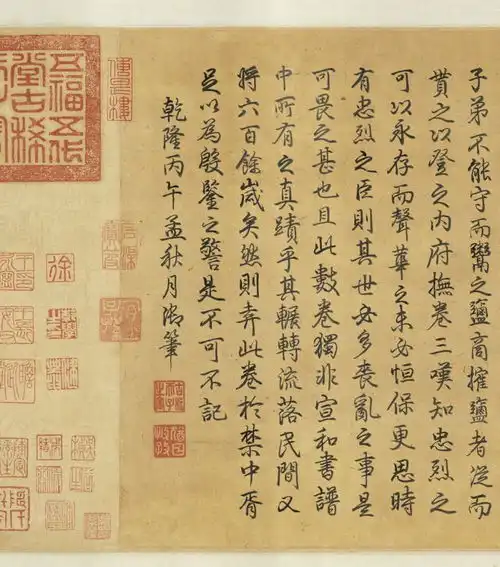 子弟不能守而鬻之鹽商搉鹽者從而
貢之以登之内府撫卷三嘆知忠烈之
可以永存而聲華之未必恒保更思時
有忠烈之臣則其世必多喪亂之事是
可畏之甚也且此數卷獨非宣和書譜
中所有之真蹟乎其輾轉流落民間又
將六百餘歲矣然則弆此卷於禁中胥
足以為殷鑒之警是不可不記
乾隆丙午孟秋月御筆
猶日孜孜
五福五代
堂古稀
徐